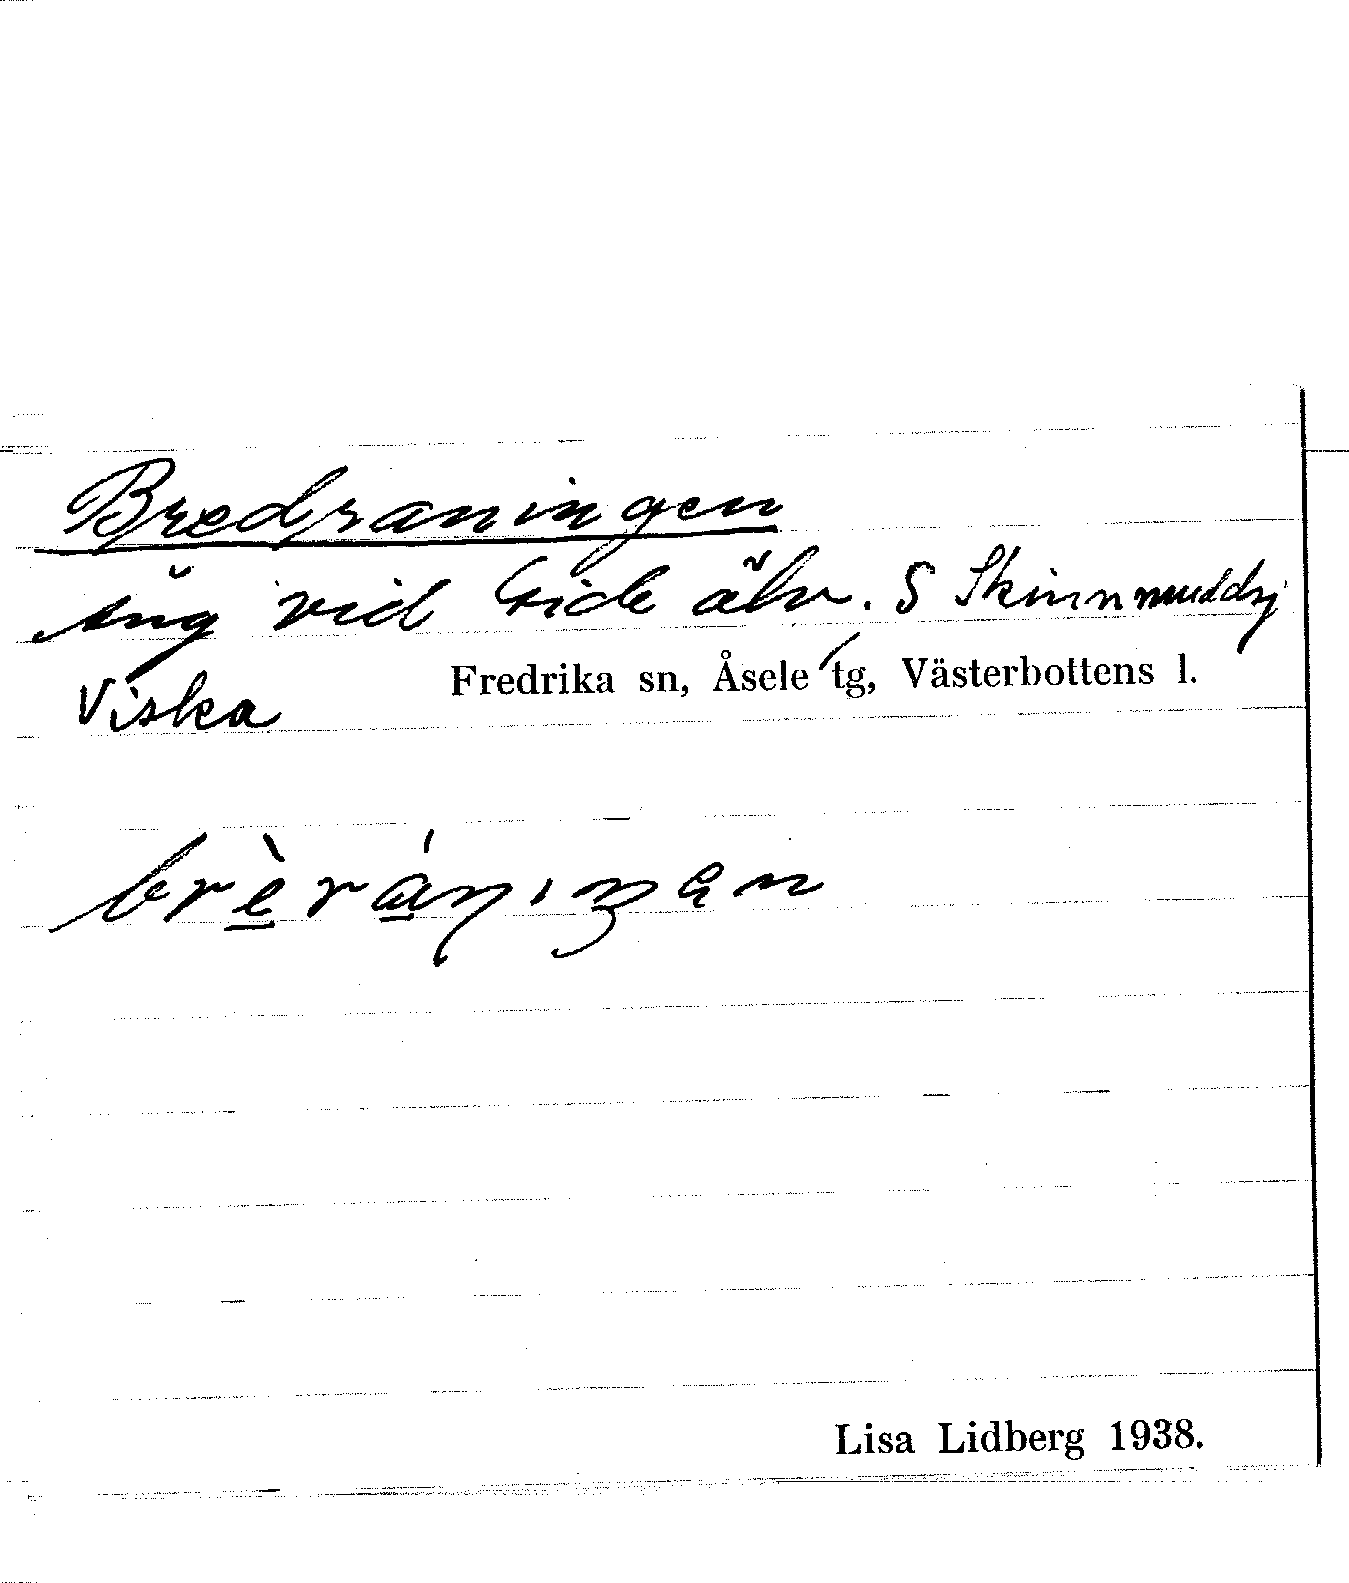 Bredraningen
Äng vid Gide älv. S Skinnmuddsj
Viska Fredrika sn, Åsele tg, Västerbottens l.
brèránıŋən
Lisa Lidberg 1938.